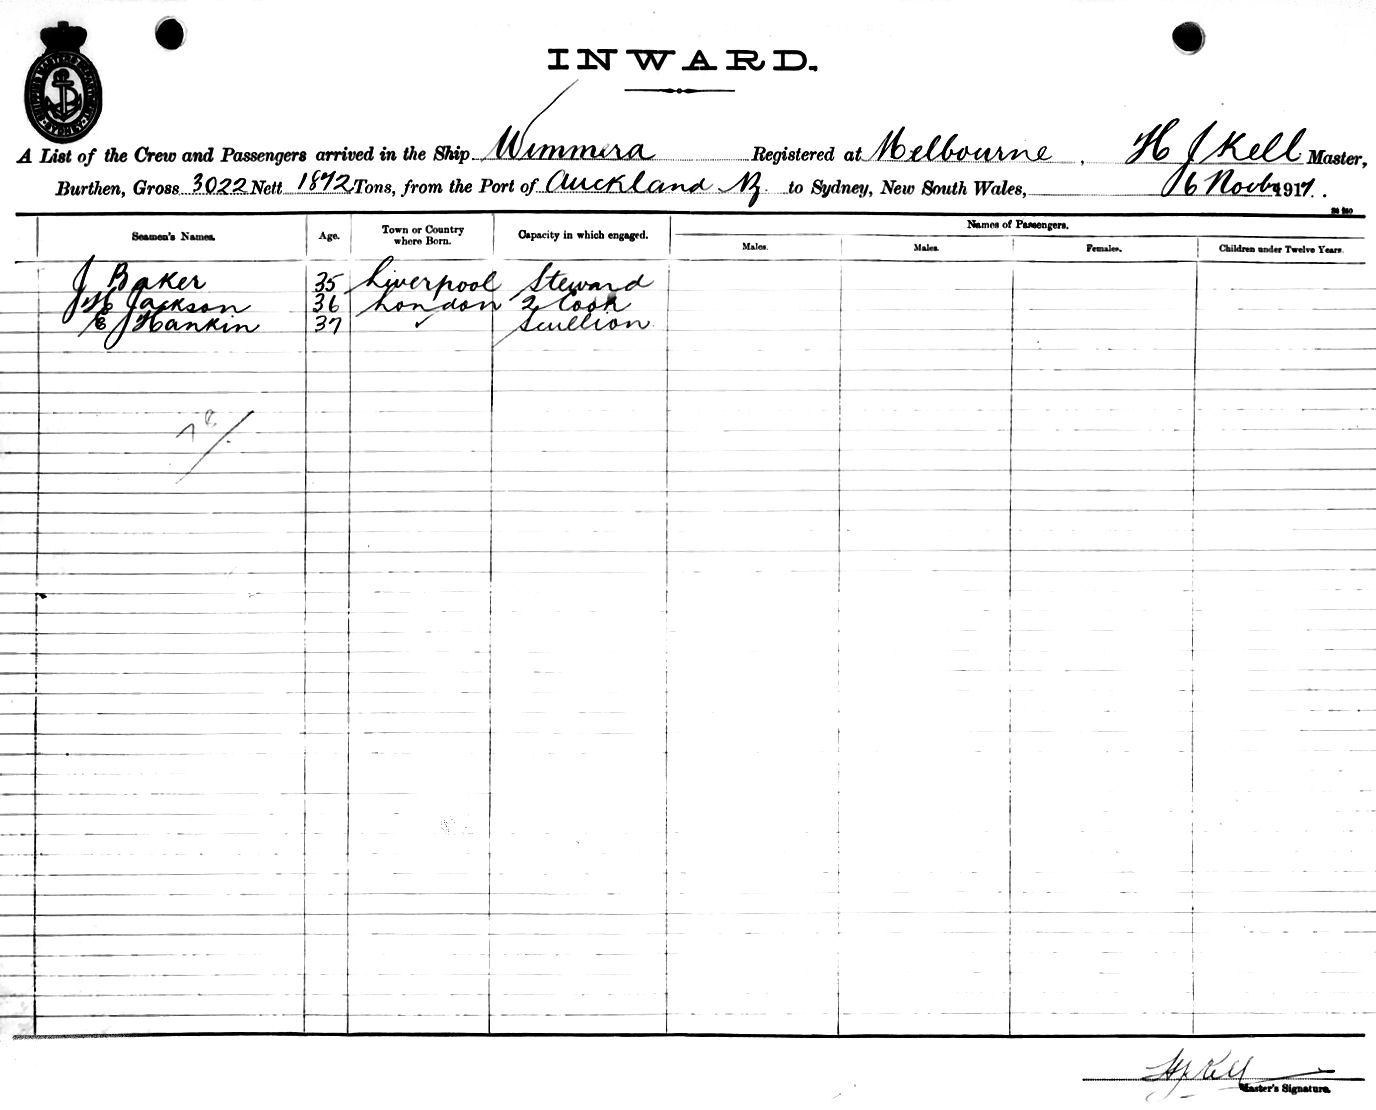 INWARD.
A List of the Crew and Passengers arrived in the Ship Wimmera Registered at Melbourne, H J Kell Master,
Burthen, Gross 3022 Nett 1872 Tons, from the Port of Auckland NZ to Sydney, New South Wales, 6 Novbr 1917.
Seamen's Names. Age. Town or Country where Born. Capacity in which engaged. Names of Passengers.
Males. Males. Females. Children under Twelve Years.
J Baker 35 Liverpool Steward
J H Jackson 36 London 2 Cook
E J Hankin 37 ✓ Scullion
H J Kell
Master's Signature.